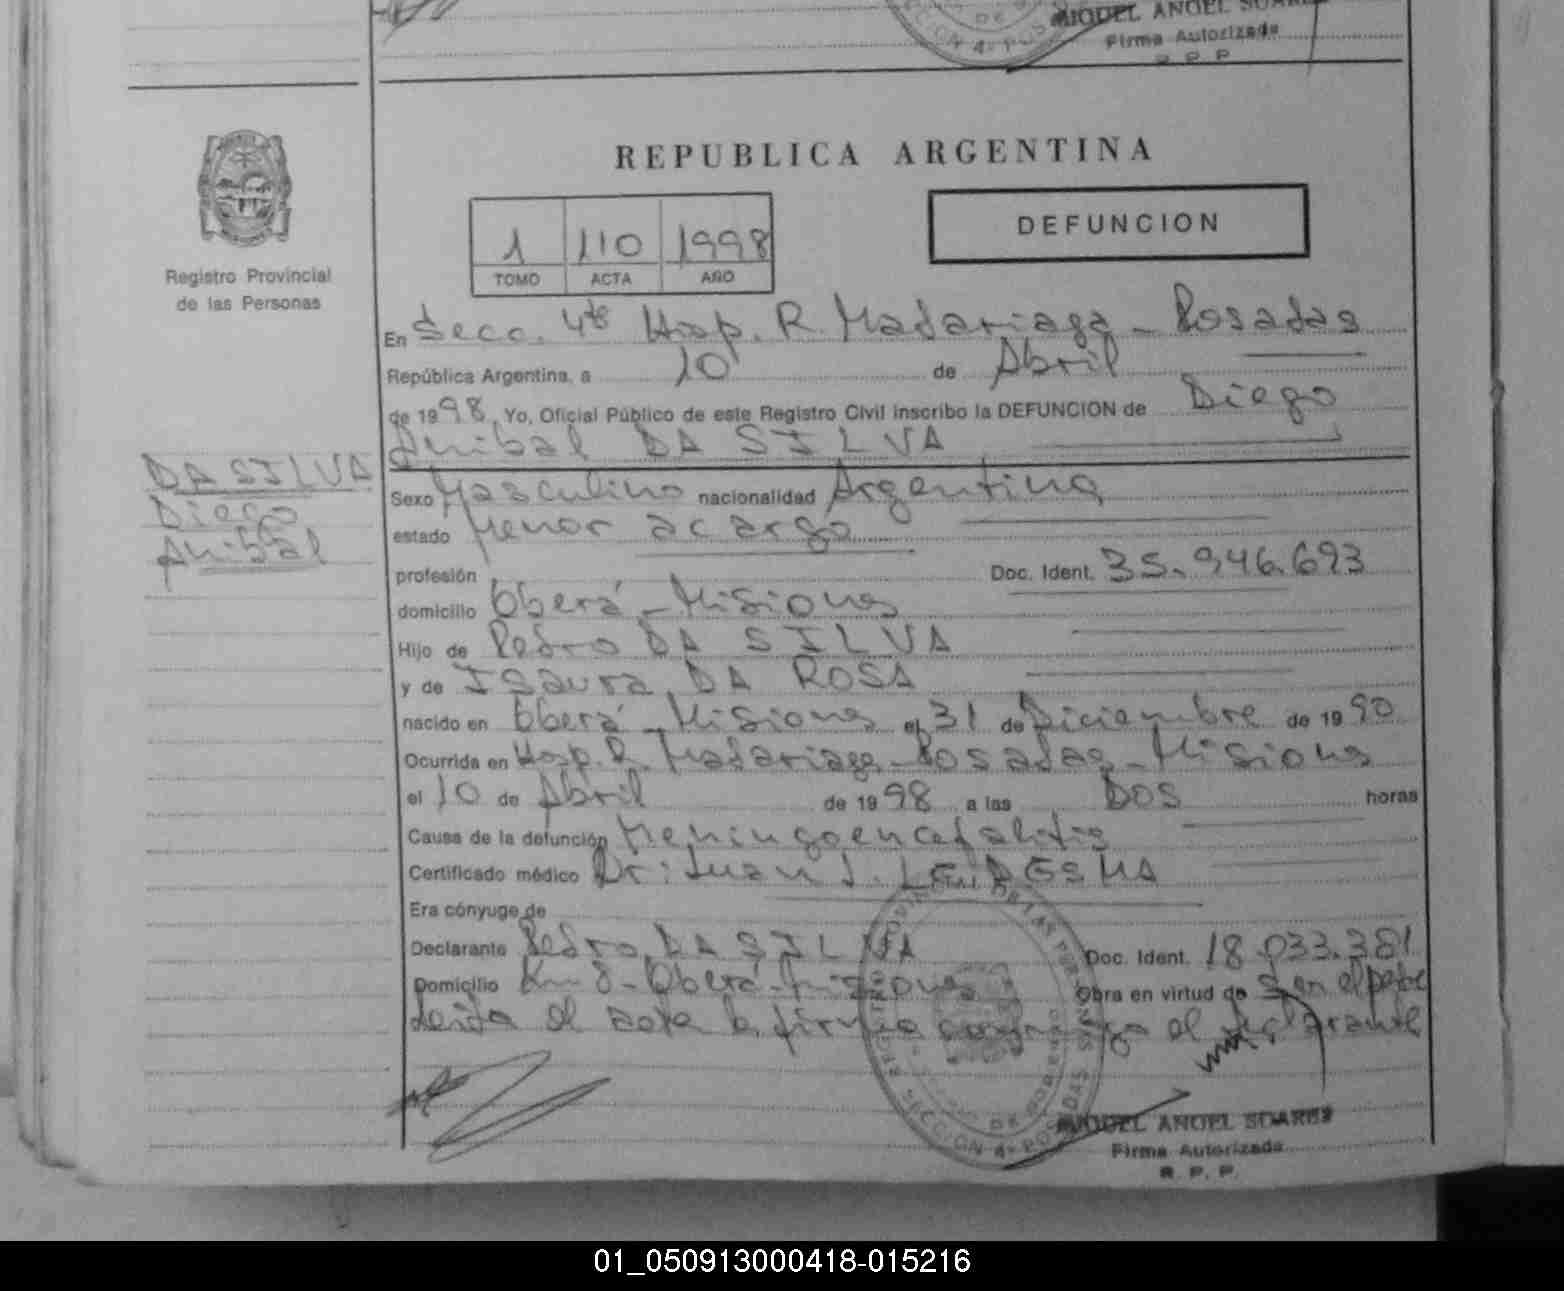 MIGUEL ANGEL SUAREZ
Firma Autorizada
R. P. P.
REPUBLICA ARGENTINA
Registro Provincial
de las Personas
1 110 1998
TOMO ACTA AÑO
DEFUNCION
En Secc. 4ta Hosp. R. Madariaga - Posadas
República Argentina, a 10 de Abril
de 1998, Yo, Oficial Público de este Registro Civil inscribo la DEFUNCION de Diego
Anibal DA SILVA
DA SILVA
Diego
Anibal
Sexo Masculino nacionalidad Argentina
estado Menor a cargo
profesión Doc. Ident. 35.946.693
domicilio Oberá - Misiones
Hijo de Pedro DA SILVA
y de Isaura DA ROSA
nacido en Oberá - Misiones el 31 de Diciembre de 1990
Ocurrida en Hosp. R. Madariaga - Posadas - Misiones
el 10 de Abril de 1998 a las DOS horas
Causa de la defunción Meningoencefalitis
Certificado médico Dr: Juan J. LEDESMA
Era cónyuge de
Declarante Pedro DA SILVA Doc. Ident. 18.033.381
Domicilio Km 8 - Oberá - Misiones Obra en virtud de ser el padre
leida el acta la firma conmigo el declarante
MIGUEL ANGEL SUAREZ
Firma Autorizada
R. P. P.
01_050913000418-015216